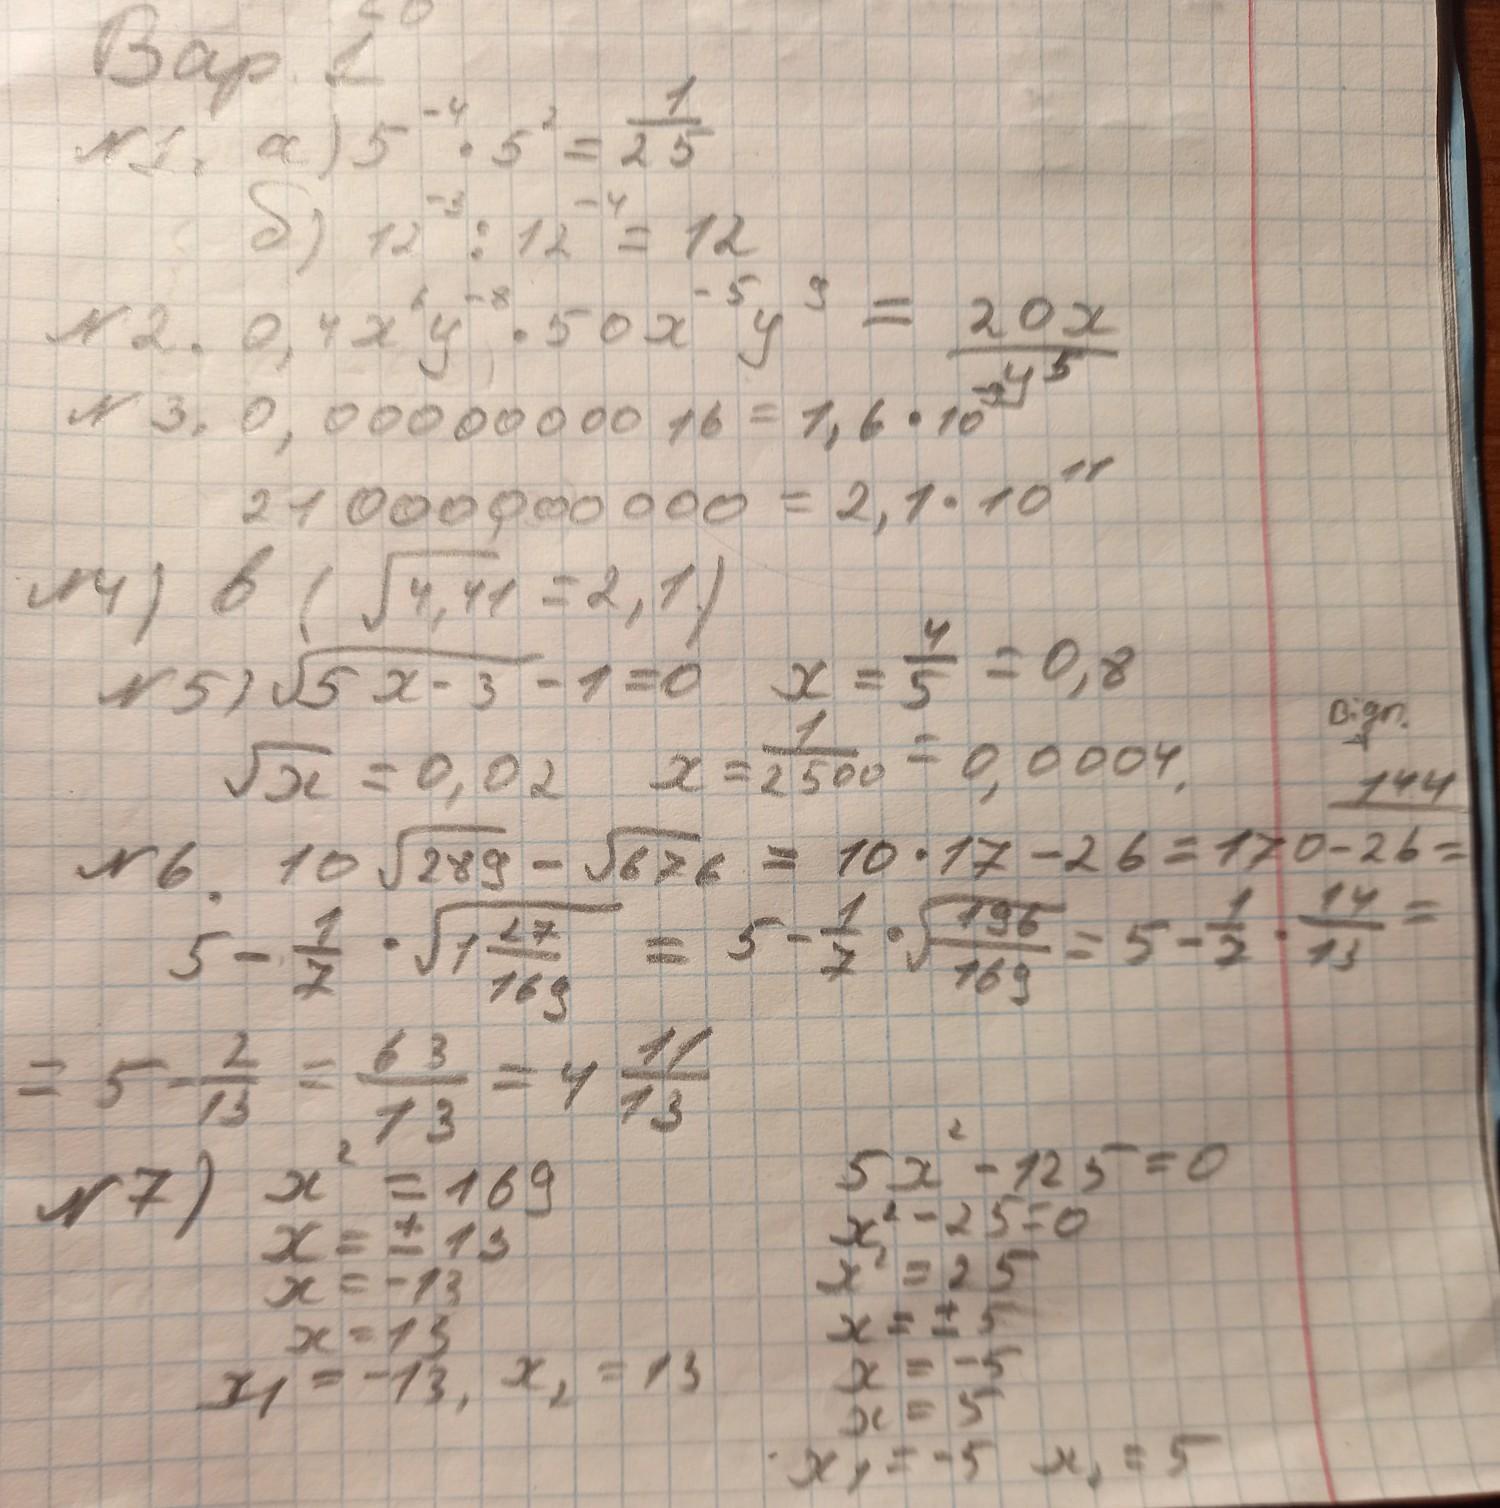 Вар. 1
N1. а) 5^-4 · 5^2 = 1/25
б) 12^-3 : 12^-4 = 12
N2. 0,4x^6y^-8 · 50x^-5y^9 = 20x/y^5
N3. 0,0000000016 = 1,6 · 10^-9
21 0000000000 = 2,1 · 10^11
N4) в (√4,41 = 2,1)
N5) √5x-3 - 1 = 0 x = 4/5 = 0,8
√x = 0,02 x = 1/2500 = 0,0004.
Відп.
144
N6. 10√289 - √676 = 10 · 17 - 26 = 170 - 26 =
5 - 1/7 · √1 27/169 = 5 - 1/7 · √196/169 = 5 - 1/7 · 14/13 =
= 5 - 2/13 = 63/13 = 4 11/13
N7) x^2 = 169
x = ± 13
x = -13
x = 13
x1 = -13, x2 = 13
5x^2 - 125 = 0
x^2 - 25 = 0
x^2 = 25
x = ± 5
x = -5
x = 5
x1 = -5 x2 = 5